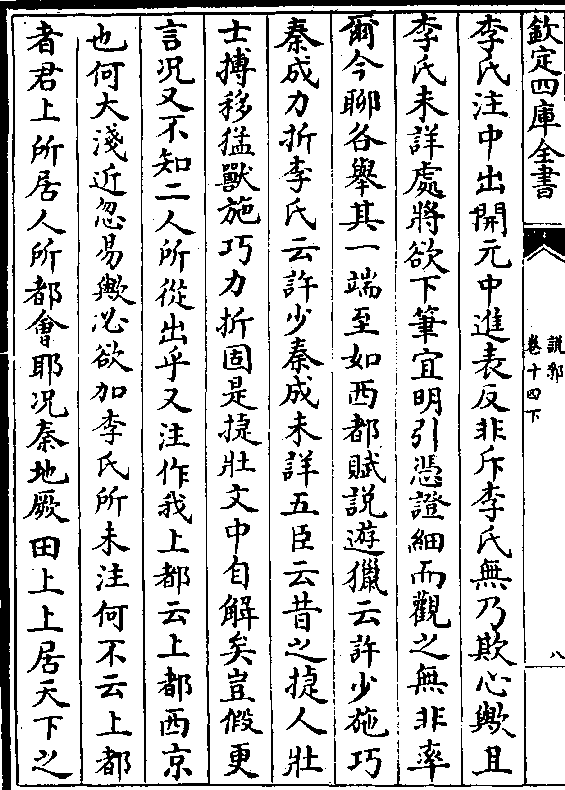 欽定四庫全書
說郛
卷十四下
八
李氏注中出開元中進表反非斥李氏無乃欺心歟且
李氏未詳處將欲下筆宜明引憑證細而觀之無非率
爾今聊各舉其一端至如西都賦説遊獵云許少施巧
秦成力折李氏云許少秦成未詳五臣云昔之㨗人壯
士搏移猛獸施巧力折固是㨗壯文中自解矣豈假更
言况又不知二人所從出乎又注作我上都云上都西京
也何大淺近忽易歟必欲加李氏所未注何不云上都
者君上所居人所都會耶况秦地厥田上上居天下之